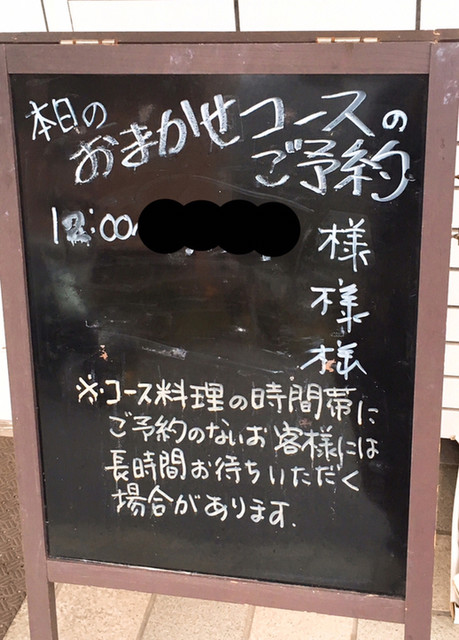 本日の
おまかせコースの
ご予約
12:00 様
様
様
※コース料理の時間帯に
ご予約のないお客様には
長時間お待ちいただく
場合があります.